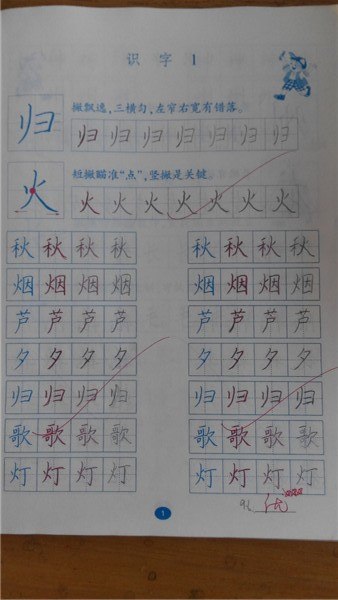 识 字 1
归
撇飘逸，三横匀，左窄右宽有错落。
归 归 归 归 归 归 归
火
短撇瞄准“点”，竖撇是关键。
火 火 火 火 火 火 火
秋 秋 秋 秋 秋 秋 秋 秋
烟 烟 烟 烟 烟 烟 烟 烟
芦 芦 芦 芦 芦 芦 芦 芦
夕 夕 夕 夕 夕 夕 夕 夕
归 归 归 归 归 归 归 归
歌 歌 歌 歌 歌 歌 歌 歌
灯 灯 灯 灯 灯 灯 灯 灯
1